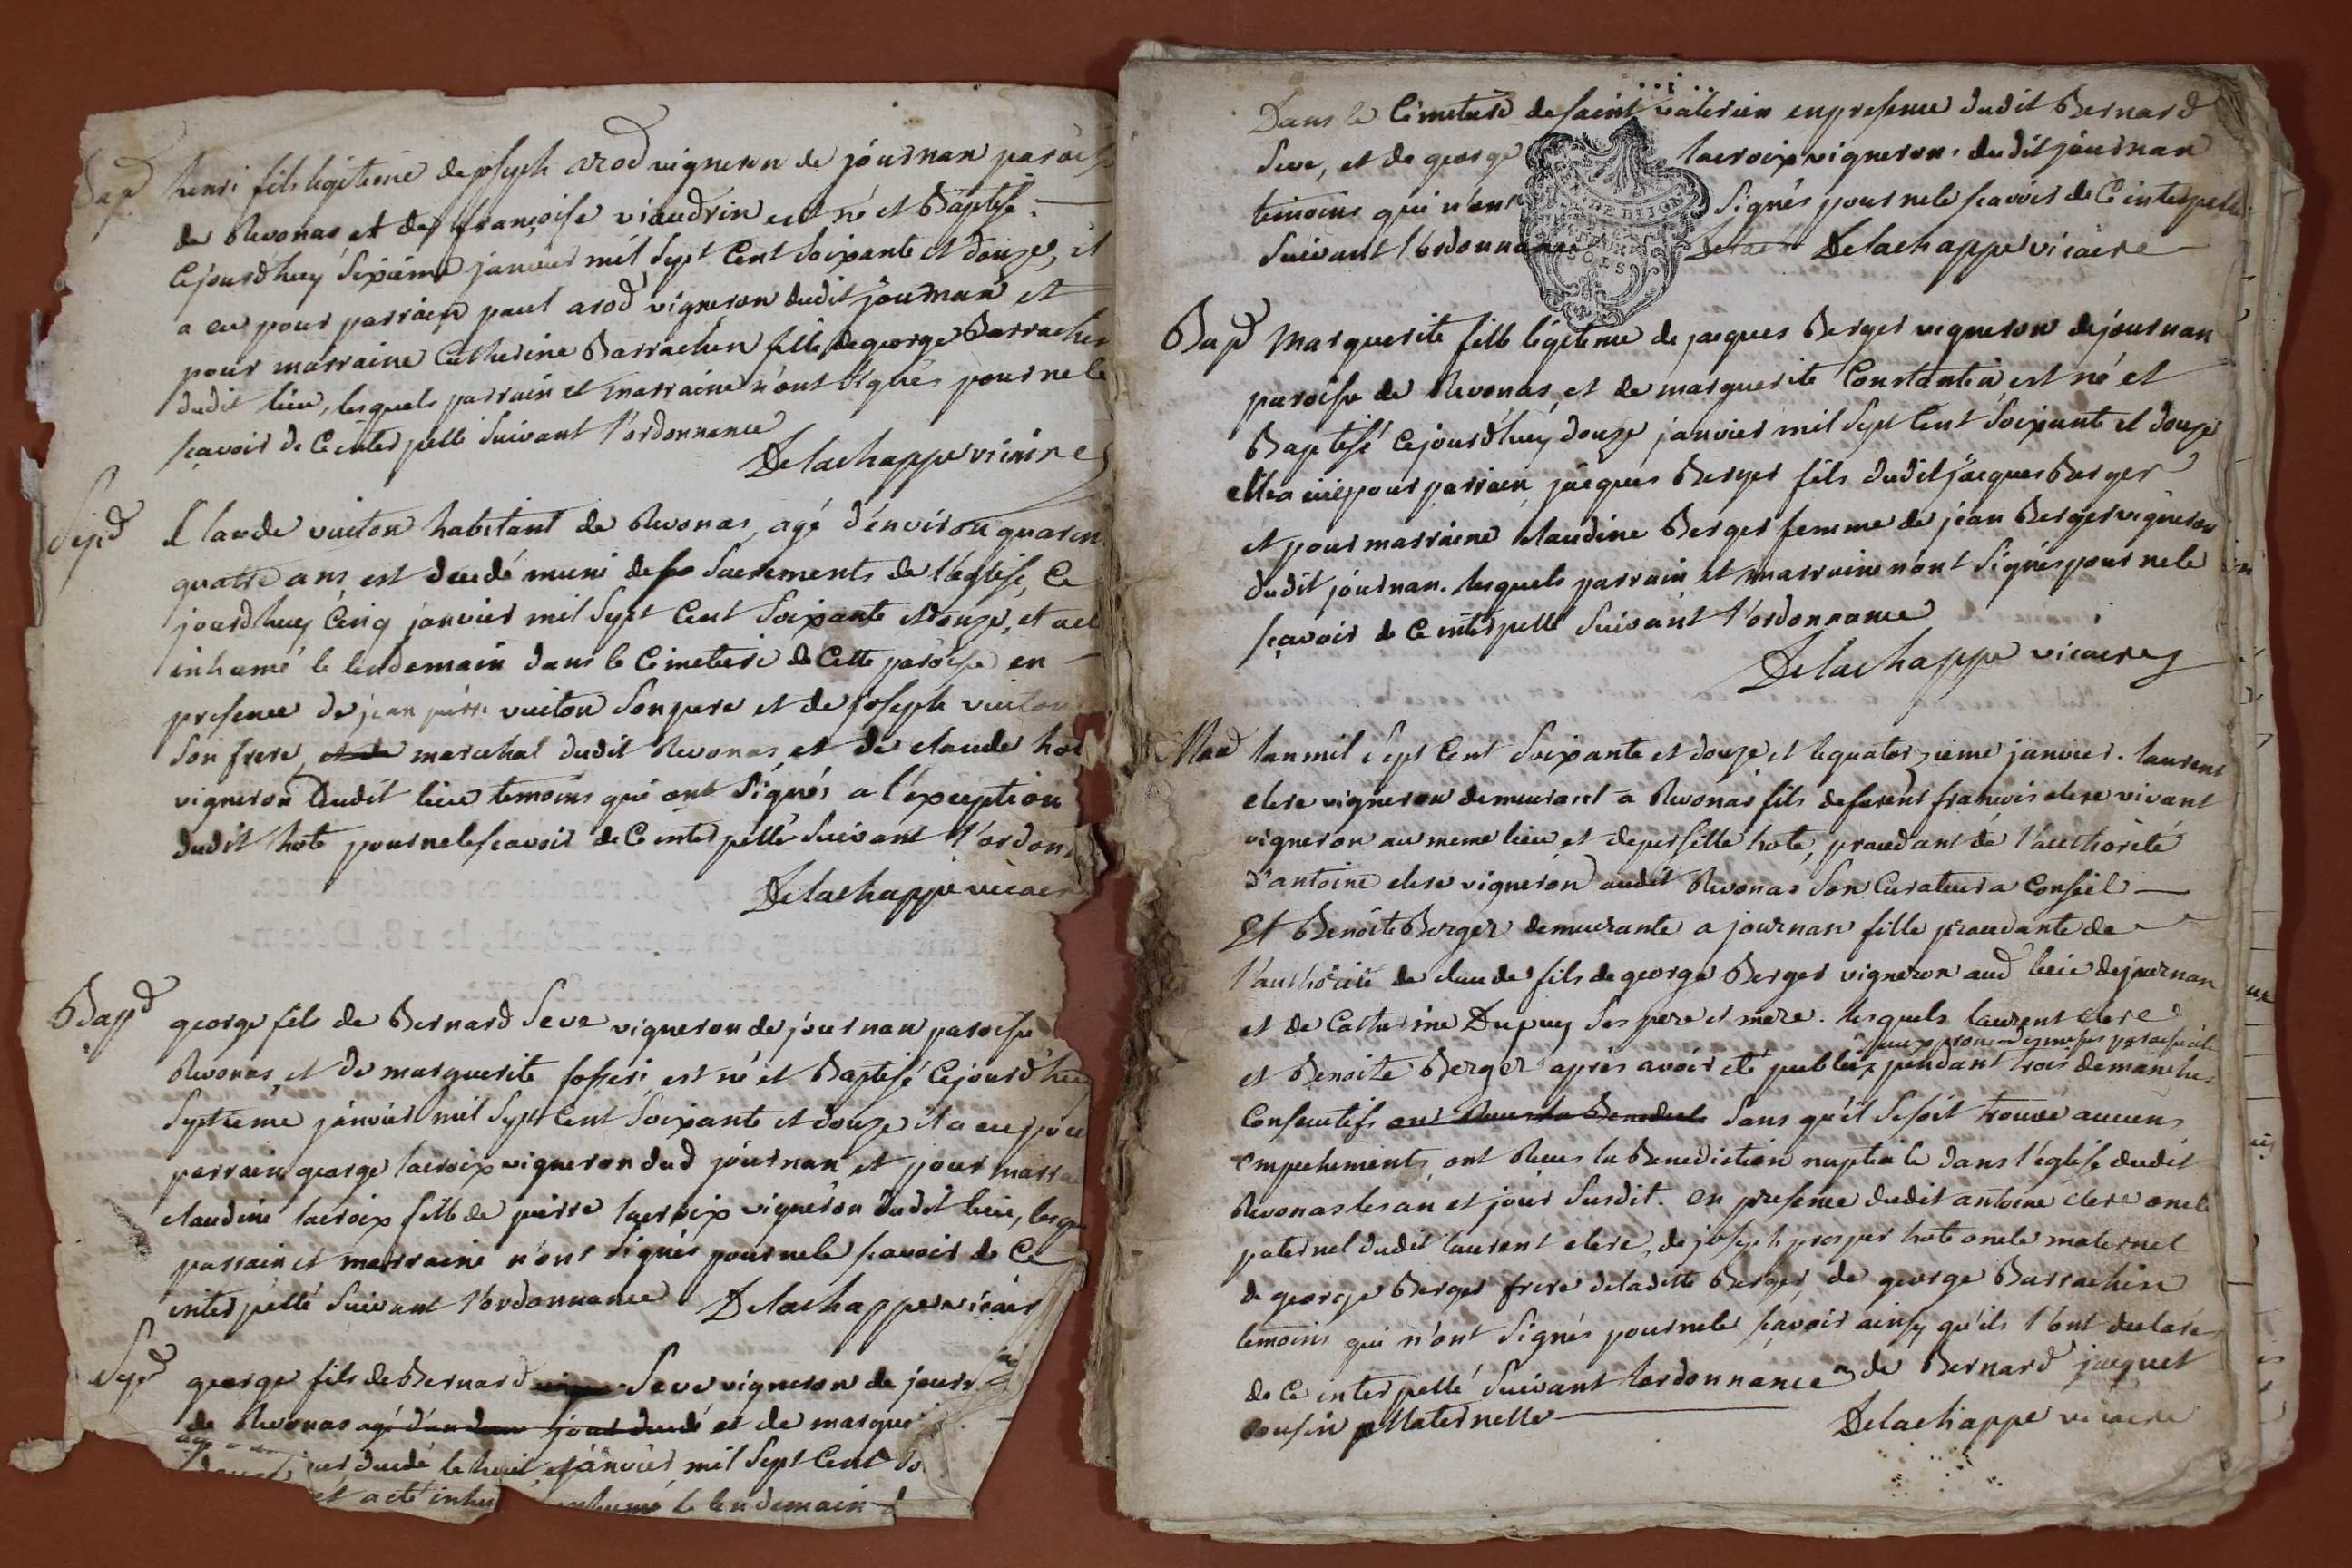 Bap.d henri fils légitime de joseph arod vigneron de journan paroisse
de Revonas et de françoise viaudrin est né et Baptisé
Cejourdhuy Sixième janvier mil Sept Cent Soixante et douze, il
a eu pour parrain paul arod vigneron dudit journan et
pour marraine Catherine Barrachin fille de george Barrachin
dudit lieu, lesquels parrain et marraine n'ont signés pour ne le
sçavoir de Ce interpellé Suivant l'ordonnance
Delachappe vicaire
Sep.d Claude vuiton habitant de Revonas, agé d'environ quaran
quatre ans, est decedé muni des Sacrements de l'église, Ce
jourdhuy Cinq janvier mil Sept Cent Soixante et douze, et a eté
inhumé le lendemain dans le Cimetiere de Cette paroisse en
presence de jean pierre vuiton Son pere et de joseph vuiton
Son frere, et de marechal dudit Revonas, et de claude hot
vigneron Dudit lieu temoins qui ont Signés a l'exception
dudit hote pour ne le scavoir de Ce interpellé Suivant l'ordon
Delachappe vicaire
Bap.d george fils de Bernard Seve vigneron de journan paroisse
Revonas, et de marguerite est né et Baptisé Cejourd'hui
Septieme janvier mil Sept Cent Soixante et douze il a eu pou
parrain george lacroix vigneron dud journan et pour marra
claudine lacroix fille de pierre lacroix vigneron dudit lieu, lesque
parrain et marraine n'ont signés pour ne le scavoir de Ce
interpellé Suivant l'ordonnance Delachappe vicair
Sep.d george fils de Bernard Seve vigneron de journ
de Revonas agé d'un jour decedé et de margue
decedé le huit janvier mil Sept Cent So
et a eté inhu inhumé le lendemain d
Dans le Cimetiere de saint valerien en presence dudit Bernard
Seve, et de george lacroix vignerons dudit journan
temoins qui n'ont Signés pour ne le scavoir de Ce interpellé
Suivant l'ordonnance Delachappe vicaire
DE DIJON
SOLS
Bap.d Marguerite fille légitime de jacques Berger vigneron de journan
paroisse de Revonas, et de marguerite Constantin est né et
Baptisé Cejourd'huy douze janvier mil Sept Cent Soixante et douze
elle a eüe pour parrain jacques Berger fils dudit jacques Berger
et pour marraine claudine Berger femme de jean Berger vigneron
dudit journan. lesquels parrain et marraine n'ont Signés pour ne le
sçavoir de Ce interpellé Suivant l'ordonnance
Delachappe vicaire
Mar lan mil Sept Cent Soixante et douze et le quatorzieme janvier. laurent
clere vigneron demeurant a Revonas fils de feu francois clere vivant
vigneron au meme lieu, et de hote, procedant de l'authorité
d'antoine clere vigneron audit Revonas Son Curateur a Conseil
Et Benoite Berger demeurante a journan fille procedante de
l'authorité de claude fils de george Berger vigneron aud lieu de journan
et de Catherine Dupuy Ses pere et mere. lesquels laurent clere
et Benoite Berger après avoir eté publiés aux prones de messes paroissiales pendant trois dimanches
Consecutifs ont Reçus la Benedict Sans qu'il Se soit trouvé aucuns
empechements, ont Reçus la Benediction nuptiale dans l'église dudit
Revonas les an et jour Susdit. en presence dudit antoine clere oncle
paternel dudit laurent clere, de joseph prosper hote oncle maternel
de george Berger frere de ladite Berger, de george Barrachin
temoins qui n'ont Signés pour ne le scavoir ainsy qu'ils l'ont declaré
de Ce interpellé Suivant lordonnance de Bernard jacquet
Cousin Maternelle Delachappe vicaire